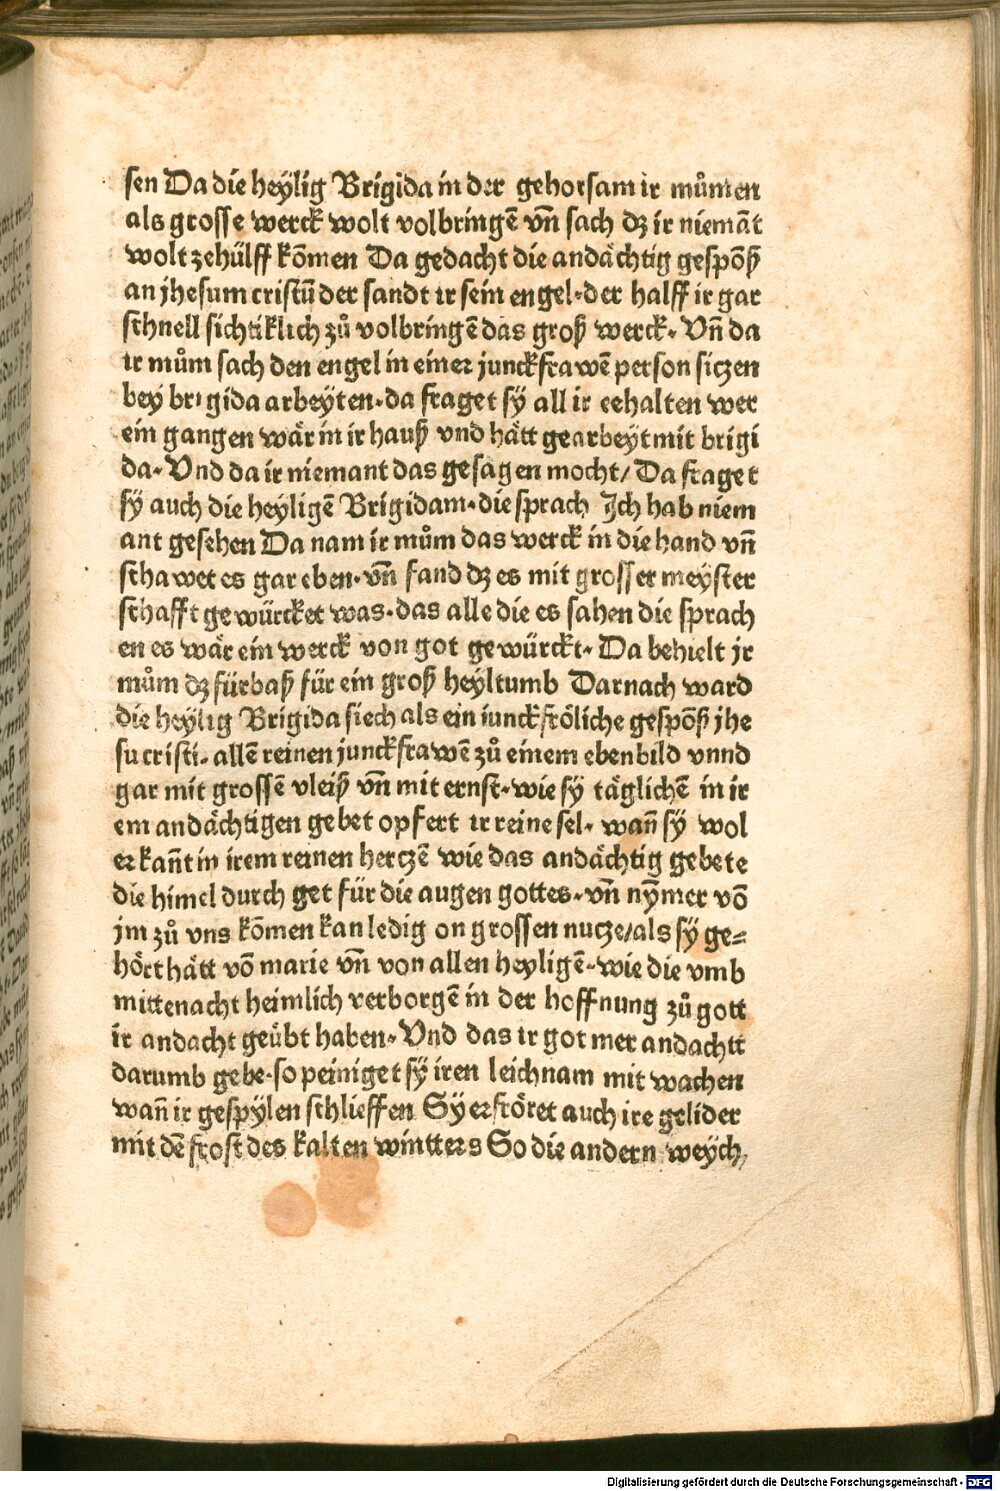 sen Da die heÿlig Brigida in der gehorsam ir můmen
als grosse werck wolt volbringē vn̄ sach dz ir niemāt
wolt zehülff kōmen Da gedacht die andächtig gespōß
an jhesum cristū der sandt ir sein engel·der halff ir gar
schnell sichtiklich zů volbringē das groß werck· Vn̄ da
ir mům sach den engel in einer junckfrawē person siczen
bey brigida arbeyten·da fraget sÿ all ir eehalten wer
ein gangen wär in ir hauß vnd hätt gearbeyt mit brigi
da· Vnd da ir niemant das gesagen mocht/ Da fraget
sÿ auch die heyligē Brigidam·die sprach Ich hab niem
ant gesehen Da nam ir mům das werck in die hand vn̄
schawet es gar eben·vn̄ fand dz es mit grosser meyster
schafft gewürcket was·das alle die es sahen die sprach
en es wär ein werck von got gewürckt· Da behielt jr
mům dz fürbaß für ein groß heyltumb Darnach ward
die heÿlig Brigida siech als ein iunckfröliche gespōß jhe
su cristi· allē reinen junckfrawē zů einem ebenbild vnnd
gar mit grossē vleiß vn̄ mit ernst·wie sÿ täglichē in ir
em andächtigen gebet opfert ir reine sel· wan̄ sÿ wol
erkan̄t in irem reinen herczē wie das andächtig gebete
die himel durch get für die augen gottes·vn̄ nȳmer vō
jm zů vns kōmen kan ledig on grossen nucze/als sÿ ge⸗
hört hätt vō marie vn̄ von allen heyligē·wie die vmb
mittenacht heimlich verborgē in der hoffnung zů gott
ir andacht geübt haben· Vnd das ir got mer andachtt
darumb gebe·so peiniget sÿ iren leichnam mit wachen
wan̄ ir gespÿlen schlieffen Sÿ erfröret auch ire gelider
mit dē frost des kalten wintters So die andern weÿch,
Digitalisierung gefördert durch die Deutsche Forschungsgemeinschaft - DFG